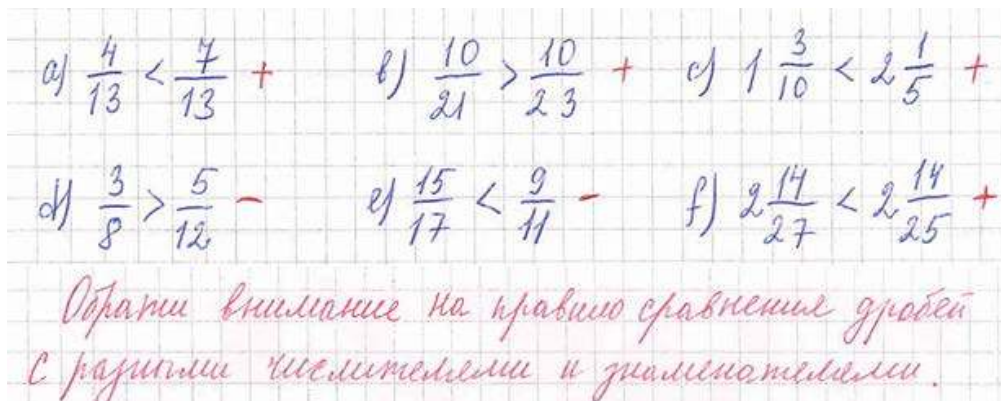 a) 4/13 < 7/13 + b) 10/21 > 10/23 + c) 1 3/10 < 2 1/5 +
d) 3/8 > 5/12 - e) 15/17 < 9/11 - f) 2 14/27 < 2 14/25 +
Обрати внимание на правило сравнения дробей
с разными числителями и знаменателями.